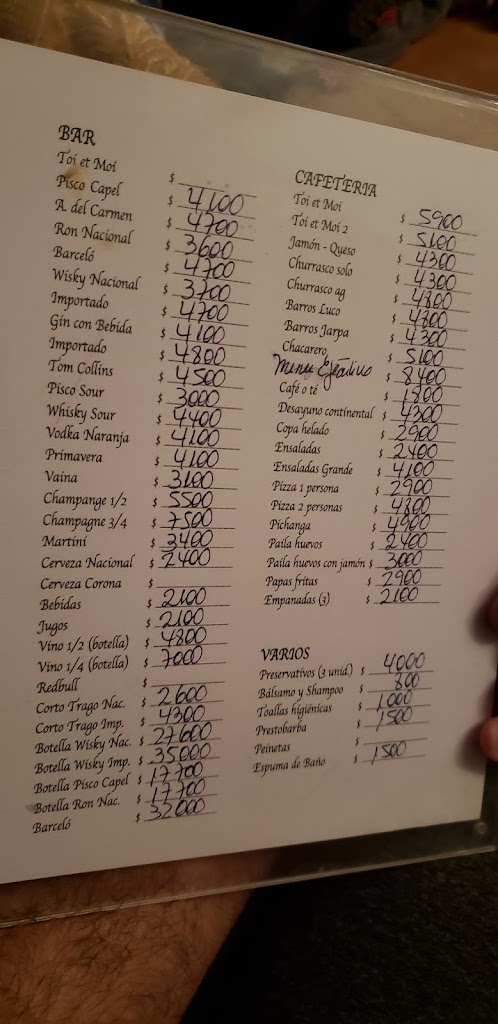 BAR
Toi et Moi $
Pisco Capel $ 4100
A. del Carmen $ 4700
Ron Nacional $ 3600
Barceló $ 4700
Wisky Nacional $ 3700
Importado $ 4700
Gin con Bebida $ 4100
Importado $ 4800
Tom Collins $ 4500
Pisco Sour $ 3000
Whisky Sour $ 4400
Vodka Naranja $ 4100
Primavera $ 4100
Vaina $ 3100
Champange 1/2 $ 5500
Champagne 3/4 $ 7500
Martini $ 3400
Cerveza Nacional $ 2400
Cerveza Corona $
Bebidas $ 2100
Jugos $ 2100
Vino 1/2 (botella) $ 4800
Vino 1/4 (botella) $ 7000
Redbull $
Corto Trago Nac. $ 2600
Corto Trago Imp. $ 4300
Botella Wisky Nac. $ 27600
Botella Wisky Imp. $ 35000
Botella Pisco Capel $ 17700
Botella Ron Nac. $ 17700
Barceló $ 32000
CAFETERIA
Toi et Moi $ 5900
Toi et Moi 2 $ 5100
Jamón - Queso $ 4300
Churrasco solo $ 4300
Churrasco ag $ 4800
Barros Luco $ 4300
Barros Jarpa $ 4300
Chacarero $ 5100
Menu Ejecutivo $ 8400
Café o té $ 1800
Desayuno continental $ 4300
Copa helado $ 2900
Ensaladas $ 2400
Ensaladas Grande $ 4100
Pizza 1 persona $ 2900
Pizza 2 personas $ 4800
Pichanga $ 4900
Paila huevos $ 2400
Paila huevos con jamón $ 3000
Papas fritas $ 2900
Empanadas (3) $ 2100
VARIOS
Preservativos (3 unid.) $ 4000
Bálsamo y Shampoo $ 800
Toallas higiénicas $ 1000
Prestobarba $ 1500
Peinetas $
Espuma de Baño $ 1500